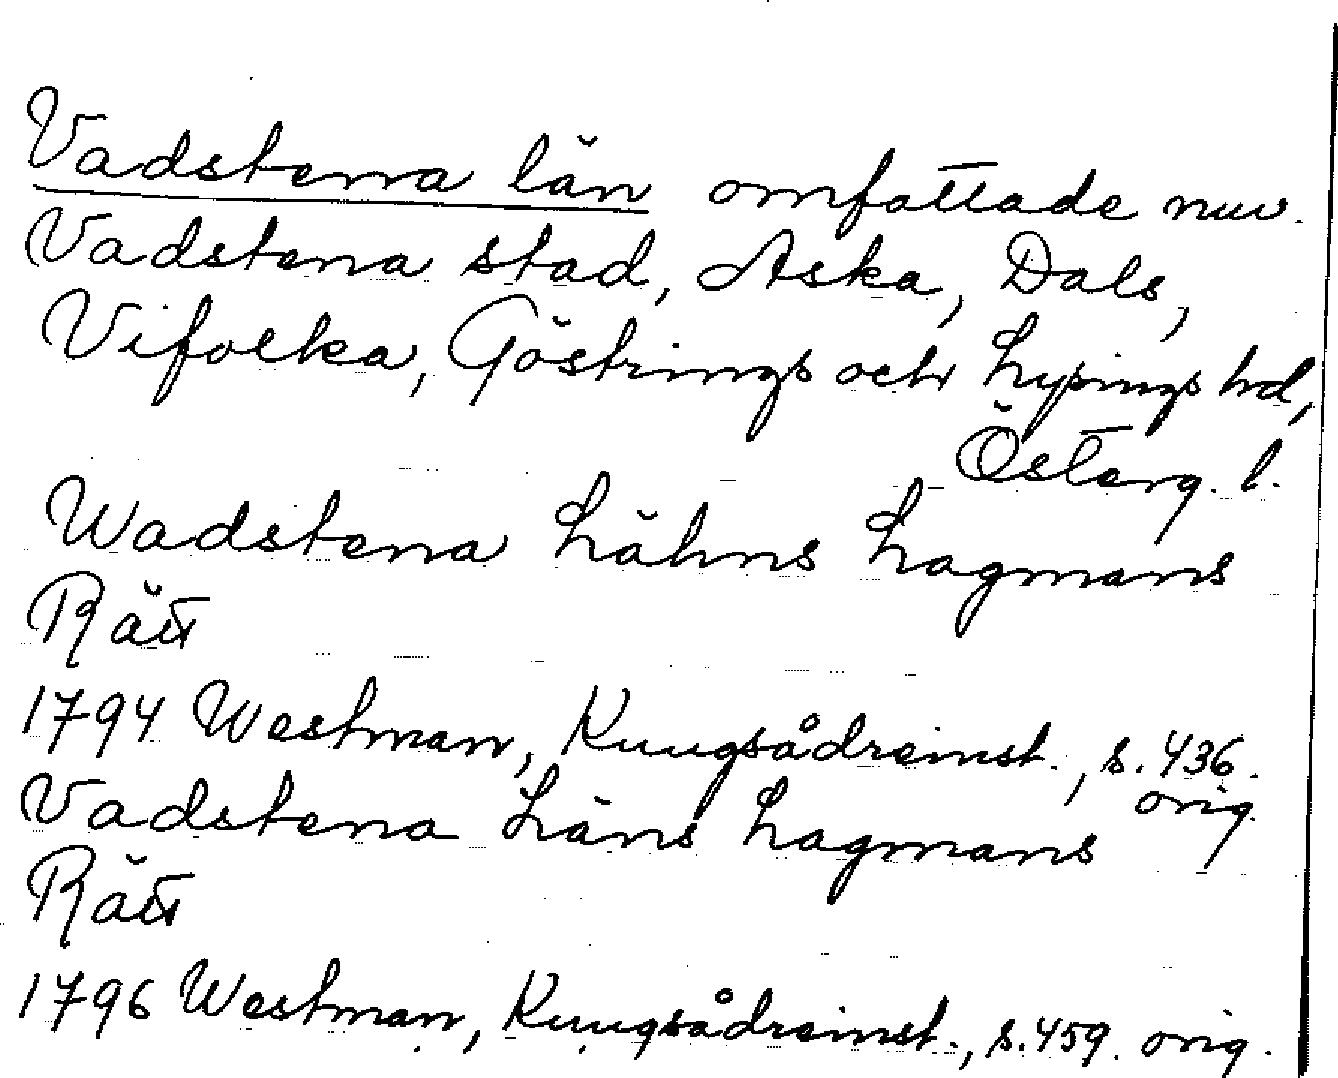 Vadstena län omfattade nuv.
Vadstena stad, Aska, Dals,
Vifolka, Göstrings och Lysings hd,
Österg. l.
Wadstena Lähns Lagmans
Rätt
1794 Westman, Kungsådreinst., s. 436.
orig.
Vadstena Läns Lagmans
Rätt
1796 Westman, Kungsådreinst., s. 459. orig.